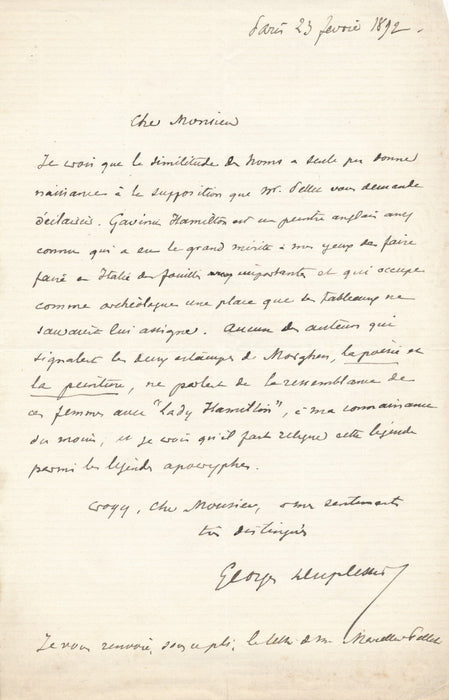 Paris 23 fevrier 1892.
Cher Monsieur
Je crois que la similitude des noms a seule pu donner
naissance à la supposition que Mr. Pellet vous demande
d'eclaircir. Gavinus Hamilton est un peintre anglais assez
connu qui a eu le grand mérite à mes yeux de faire
faire en Italie des fouilles importantes et qui occupe
comme archéologue une place que ses tableaux ne
sauraient lui assigner. Aucun des auteurs qui
signalent les deux estampes de Morghen, la poésie et
la peinture, ne parlent de la ressemblance de
ces femmes avec "Lady Hamilton", à ma connaissance
du moins, et je crois qu'il faut releguer cette légende
parmi les légendes apocryphes.
Croyez, cher Monsieur, à mes sentiments
très distingués
Georges Duplessis
Je vous renvoie, sous ce pli, la lettre de Mr Marcellin Pellet